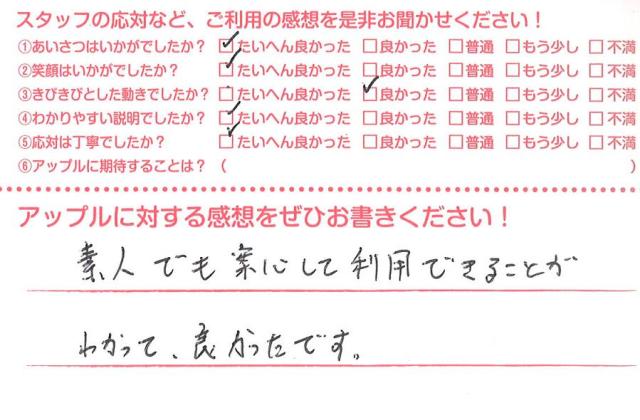 スタッフの応対など、ご利用の感想を是非お聞かせください！
①あいさつはいかがでしたか？ ☑たいへん良かった □良かった □普通 □もう少し □不満
②笑顔はいかがでしたか？ ☑たいへん良かった □良かった □普通 □もう少し □不満
③きびきびとした動きでしたか？ □たいへん良かった ☑良かった □普通 □もう少し □不満
④わかりやすい説明でしたか？ ☑たいへん良かった □良かった □普通 □もう少し □不満
⑤応対は丁寧でしたか？ ☑たいへん良かった □良かった □普通 □もう少し □不満
⑥アップルに期待することは？（ ）
アップルに対する感想をぜひお書きください！
素人でも安心して利用できることが
わかって、良かったです。